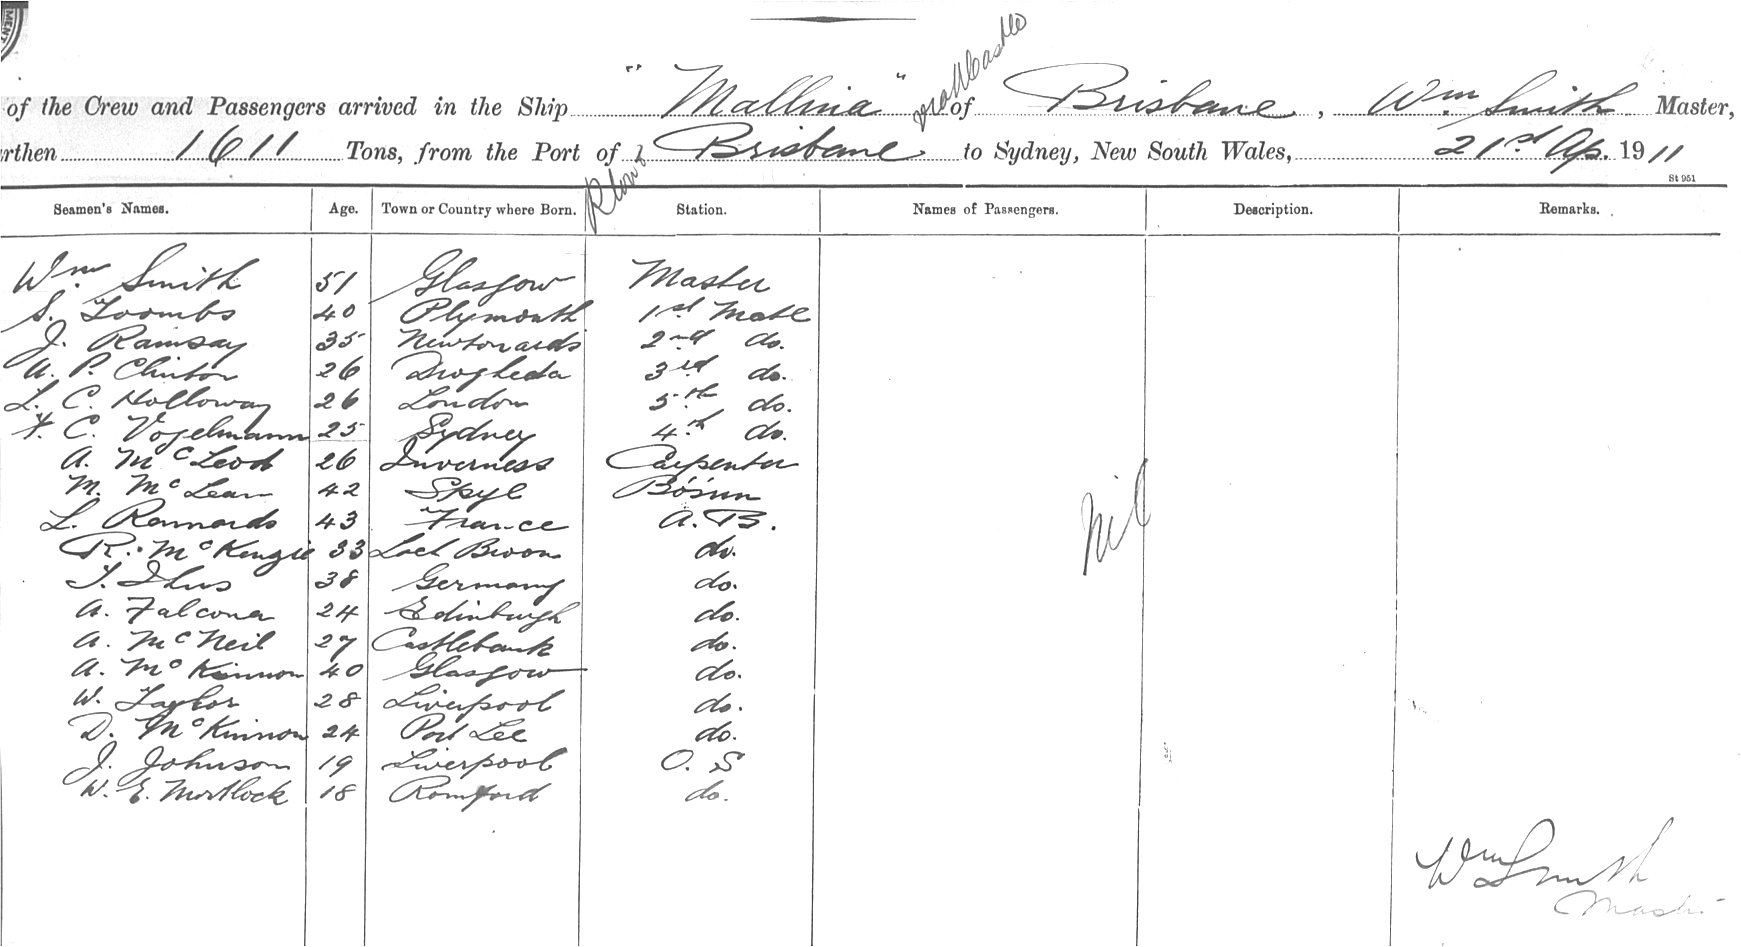 MENT
of the Crew and Passengers arrived in the Ship "Mallina" of Brisbane, Wm Smith Master,
rthen 1611 Tons, from the Port of Brisbane to Sydney, New South Wales, 21st Ap. 1911
St 951
Seamen's Names. Age. Town or Country where Born. Station. Names of Passengers. Description. Remarks.
Wm Smith 51 Glasgow Master
S. Toombs 40 Plymouth 1st Mate
J. Ramsay 35 Newtonards 2nd do.
A. P. Clinton 26 Drogheda 3rd do.
L. C. Holloway 26 London 5th do.
F. C. Vogelmann 25 Sydney 4th do.
A. McLeod 26 Inverness Carpenter
M. McLean 42 Skye Bosun
L. 43 France A.B.
R. McKenzie 33 Loch Broom do.
38 Germany do.
A. Falconer 24 Edinburgh do.
A. McNeil 27 Castlebank do.
A. McKinnon 40 Glasgow do.
W. Taylor 28 Liverpool do.
D. McKinnon 24 Port Lee do.
J. Johnson 19 Liverpool O. S
W. E. Mortlock 18 Romford do.
Nil
Wm Smith
Master